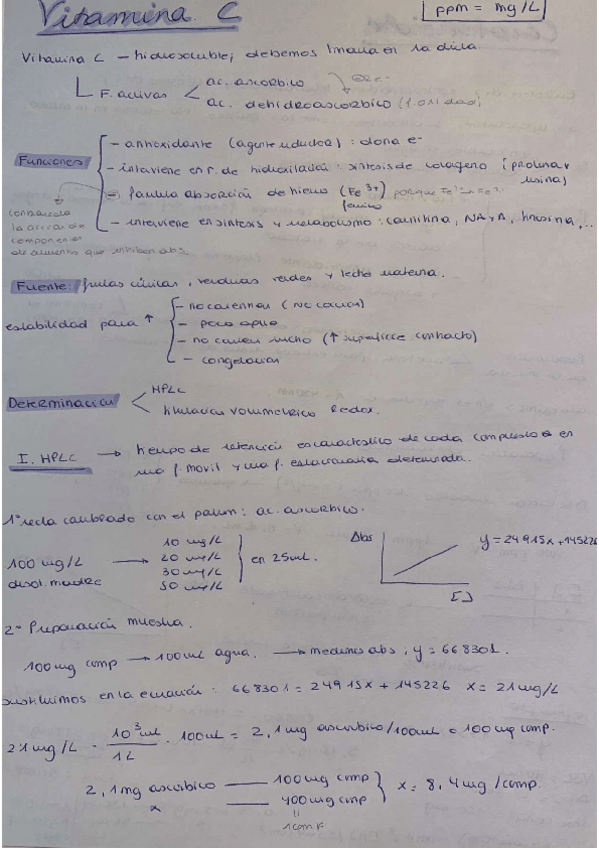 Vitamina C
ppm = mg/L
Vitamina C – hidrosoluble, debemos en la dieta.
F. activas
ac. ascorbico
ac. dehidroascorbico
Funciones
– antioxidante (agente reductor) : dona e-
– interviene en r. de hidroxilación : síntesis de colageno (prolina y lisina)
– facilita absorción de hierro (Fe 3+) porque
ferrico
contrarresta
la activ. de
componentes
de alimentos que inhiben abs.
– interviene en síntesis y metabolismo : carnitina, NA y A, ...
Fuente: frutas cítricas, verduras verdes y leche materna.
estabilidad para ↑
– no calentar (no cocción)
– poca agua
– no mucho (↑ superficie contacto)
– congelación
Determinación
HPLC
titulación volumetrica Redox.
I. HPLC → tiempo de retención es caracteristico de cada compuesto en
una f. movil y una f. estacionaria determinada.
1º recta calibrado con el patron: ac. ascorbico.
100 mg/L
disol. madre
10 mg/L
20 mg/L
30 mg/L
50 mg/L
en 25mL.
Abs
y = 24915x + 145226
[ ]
2º Preparación muestra.
100mg comp → 100mL agua. → medimos abs, y = 668301.
sustituimos en la ecuación: 668301 = 24915x + 145226 x = 21mg/L
21mg/L · 10³mL / 1L · 100mL = 2,1mg ascorbico/100mL = 100mg comp.
2,1mg ascorbico — 100mg comp
x — 400mg comp
x = 8,4mg/comp.
"
1 comp.